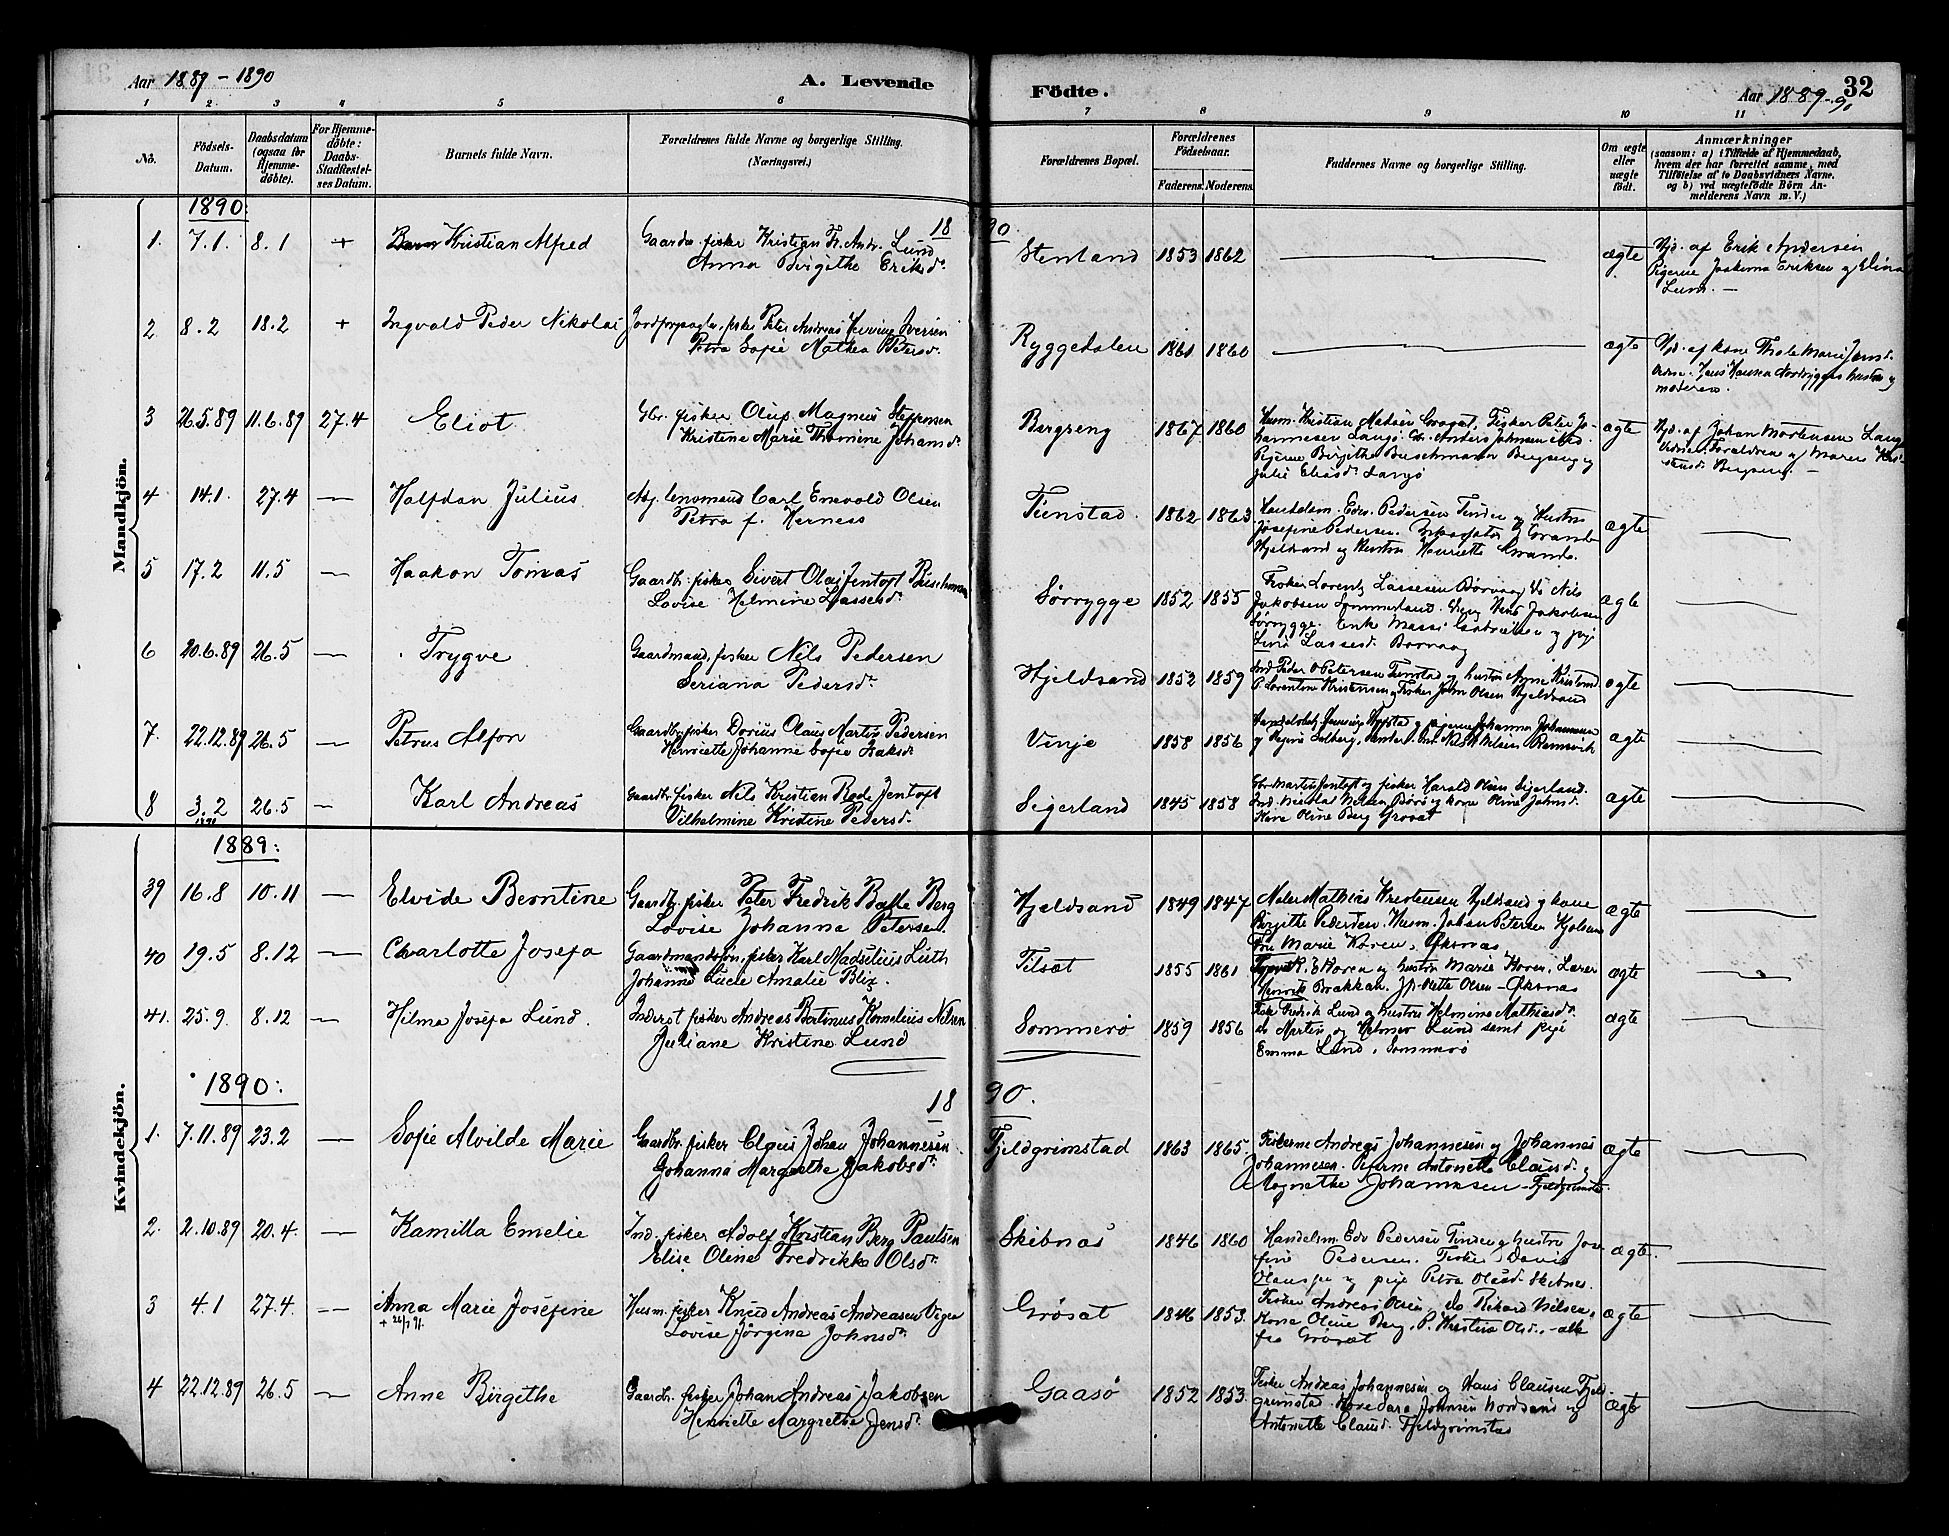 Aar 1889-1890
A. Levende
Födte.
Aar 1889-90
32
1 2. 3 4 5 6 7 8 9 10 11
No.
Födsels-Datum.
Daabsdatum (ogsaa for Hjemme-döbte).
For Hjemme-döbte: Daabs-Stadfæstel-ses Datum.
Barnets fulde Navn.
Forældrenes fulde Navne og borgerlige Stilling.
(Næringsvei.)
Forældrenes Bopæl.
Forældrenes Födselsaar.
Faderens. Moderens.
Faddernes Navne og borgerlige Stilling.
Om ægte eller uægte födt.
Anmærkninger
(saasom: a) i Tilfælde af Hjemmedaab,
hvem der har forrettet samme, med
Tilföielse af to Daabsvidners Navne.
og b) ved uægtefödte Börn An-
melderens Navn m. V.)
Mandkjön.
1890:
18
90
1. 7.1. 8.1 + Kristian Alfred
Gaardbr. fisker Kristian Fr. Andr. Lund
Anna Birgithe Eriksd.
Stenland 1853 1862 — ægte
Hjd. af Erik Andersen
Pigerne Jakobina Eriksen og Elina
Lund. —
2 8.2 18.2 + Ingvald Peder Nikolai
fisker Peter Andreas Iversen
Petra Sofie Mathea Petersd.
Ryggedalen 1861 1860 — ægte
Hjd. af kone
Hans Hansen Nordrygges hustru og
moderen.
3 26.5.89 11.6.89 27.4 Eliot
Gbr. fisker Oluf Magnus Steffensen
Kristine Marie Thomine Johansd.
Bergseng 1867 1860
Husm. Kristian Madsen Grosæt, Fisker Peter Jo-
hannesen Langö. Anders Johnsen ibid.
Pigerne Birgithe Buschmann Bergseng og
Julie Eliasd. Langö
ægte
Hjd. af Johan Mortensen Langö
Forældrene og Maren
Bergseng. —
4 14.1. 27.4 — Halfdan Julius
Adj. lensmand Carl Emvald Olsen
Petra f. Herness
Tunstad. 1862 1863
Handelsm. Edv. Pedersen Tinden og Hustru
Josefine Pedersen.
Hjeldsand og Hustru Henriette
ægte —
5 17.2 11.5 — Haakon Tomas
Gaardbr. fisker Sivert Olai Jentoft Buschmann
Lovise Helmine Lassesd.
Sörrygge 1852 1855
Fisker Lorentz Lassesen Börvaag Nils
Jakobsen Sommerland. Hans Jakobsen
Sörrygge. Enk Massi Gabrielsen og pige
Lina Lassesd. Borvaag
ægte —
6 20.6.89 26.5 — Trygve
Gaardmand, fisker Nils Pedersen
Seriana Pedersd.
Hjeldsand 1852 1859
Ind. Peder O Petersen Tunstad og hustru Anne Kristensd.
P. Lorentine Kristensen og Fisker John Olsen Hjeldsand
ægte —
7. 22.12.89 26.5 — Petrus Alfon
Gaardbr. fisker Dorius Olaus Martin Pedersen
Henriette Johanne Sofie Isaksd.
Vinje 1858 1856
og pigerne Johanna Johannesen
og Regine Solberg,
ægte —
8 3.2 26.5 — Karl Andreas
1890
Gaardbr. fisker Nils Kristian Rode Jentoft
Vilhelmine Kristine Pedersd.
Sigerland 1845 1858
Gbr. Martin Jentoft og fisker Harald Olsen Sigerland.
Ind. Nikolai Nilsen Börö og kone Oline Johnsd.
Kone Oline Berg Grosæt
ægte —
Kvindekjön.
1889:
39 16.8 10.11 — Elvide Berntine
Gaardbr. fisker Peter Fredrik Berg
Lovise Johanna Petersen.
Hjeldsand 1849 1847
Maler Mathias Kristensen Hjeldsand og kone
Birgitte Pedersen. Husm. Johan Petersen
Marie Koren, Öksnæs
ægte —
40 19.5 8.12 — Charlotte Josefa
Gaardmandssön, fisker Karl Madselius Luth
Johanna Lucie Amalie Blix.
Tilsæt 1855 1861
Koren og hustru Marie Koren, Lærer
Olsen - Öksnæs
ægte —
41. 25.9. 8.12 — Hilma Josefa Lund.
Inderst fisker Andreas Bertinus Kornelius Nilsen
Juliane Kristine Lund
Sommerö 1859 1856
Fisk. Fredrik Lund og hustru Helmine Mathiasd.
do Martin og Helmer Lund samt pige
Emma Lund, Sommerö
ægte —
1890:
18
90.
1. 7.11.89 23.2 — Sofie Alvilde Marie
Gaardbr. fisker Claus Johan Johannesen
Johanna Margrethe Jakobsd.
Fjeldgrimstad 1863 1865.
Fiskerne Andreas Johannesen og Johannes
Johannesen. Pigerne Antonette Clausd. og
Magnethe Johannesen - Fjeldgrimstad
ægte —
2. 2.10.89 20.4. — Kamilla Emelie
Ind. fisker Adolf Kristian Berg Paulsen
Elise Olene Fredrikke Olsd.
Skibnæs 1846 1860
Handelsm. Edv Pedersen Tinden og hustru Jose-
fine Pedersen. Fisker Daniel
Olaussen og pige Petra Olausd. Skibnes.
ægte. —
3 4.1 27.4. — Anna Marie Josefine
+ 26/2 91.
Husm. fisker Knud Andreas Andreasen Vigen
Lovise Jörgine Johnsd.
Grösæt 1846 1853.
Fisker Andreas Olsen, do. Rikard Nilsen,
Kone Oline Berg, P. Kristine Olsd. - alle
fra Grösæt
ægte —
4 22.12.89 26.5 — Anne Birgithe
Gaardbr. fisker Johan Andreas Jakobsen
Henriette Margrethe Jensd.
Gaasö 1852 1853.
Fisker Andreas Johannesen og Hans Clausen Fjeld-
grimstad. Kone Sara Johnsen Nordsand og
Antonette Clausd. Fjeldgrimstad
ægte —